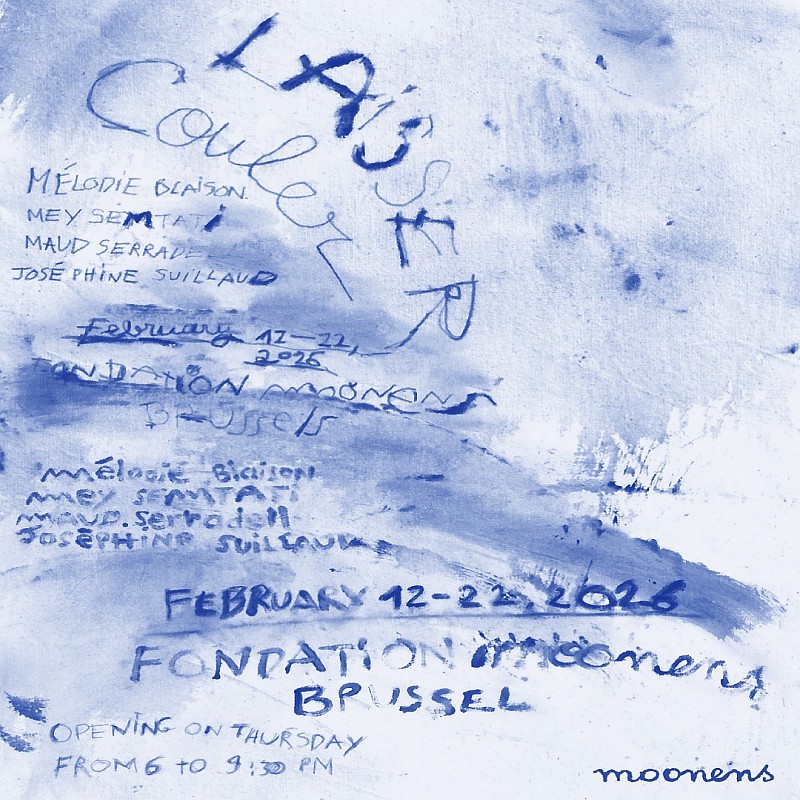 LAiSSER
Couler
MÉLODIE BLAISON
MEY SEMTATi
MAUD SERRADE
JOSÉPHINE SUILLAUD
February 12-22,
2026
FONDATiON moonens
BRUSSels
mélodie Blaison
mey SEMTATi
mAUD.serradell
JOSÉPHiNE SUiLLAUD
FEBRUARY 12-22, 2026
FONDATiON moonens
BRUSSEL
OPENiNG ON THURSDAY
FROM 6 TO 9:30 PM
moonens